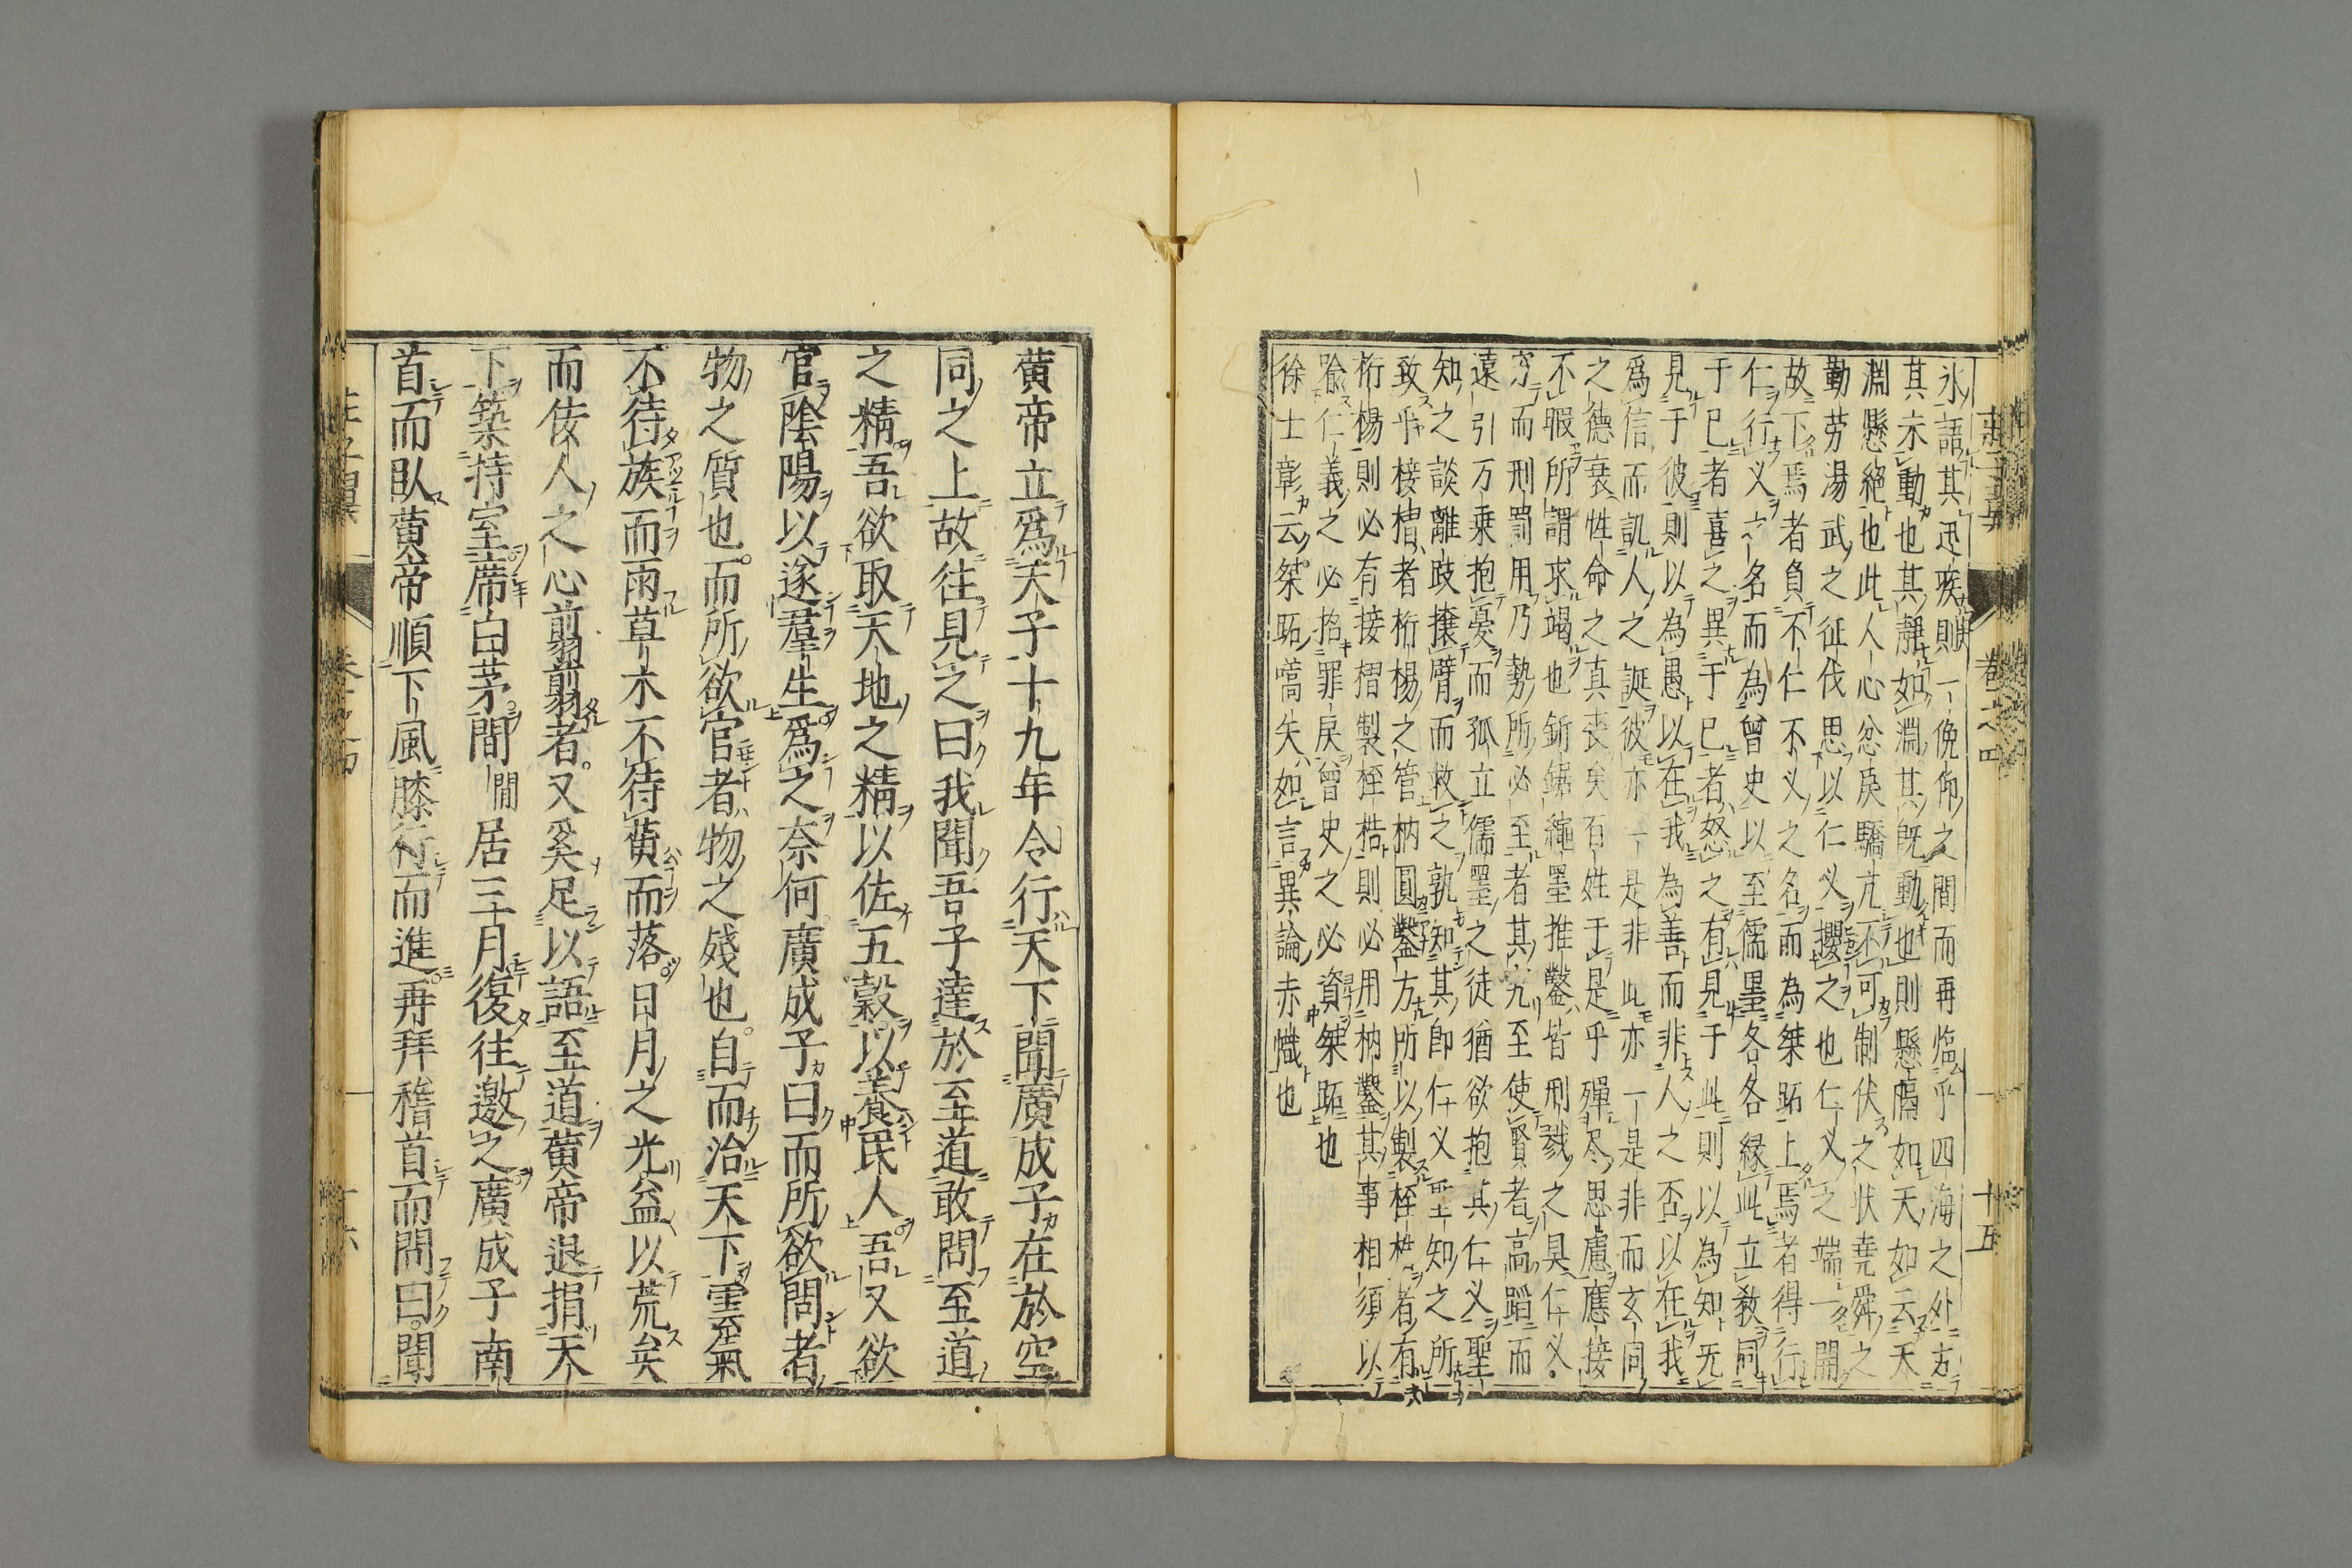 氷語其迅疾則一俛仰之間而再臨乎四海之外方
其未動也其靜如淵其既動也則懸隔如天如云天
淵懸絕也此人心忿戾驕亢不可制伏之状堯舜之
勤劳湯武之征伐思以仁义攖之也仁义之端一開
故下焉者負不仁不义之名而為桀跖上焉者得行
仁行义之名而為曾史以至儒墨各各緣此立敎同
于已者喜之異于已者怒之有見于此則以為知无
見于彼則以為愚以在我為善而非人之否以在我
爲信而譏人之誕彼亦一是非此亦一是非而玄同
之德衰性命之真丧矣百姓于是乎殫尽思慮應接
不暇所謂求竭也釿鋸繩墨推鑿皆刑戮之具仁义
穷而刑罰用乃勢所必至者其究至使賢者高蹈而
遠引万乗抱憂而孤立儒墨之徒猶欲抱其仁义聖
知之談離跂攘臂而救之孰知其即仁义聖知之所
致乎椄槢者桁楊之管枘圓鑿方所以製桎梏者有
桁楊則必有接摺製桎梏則必用枘鑿其事相須以
喻仁義之必招罪戾曾史之必資桀跖也
徐士彰云桀跖嚆矢如言異論赤幟也
卷之四
十五
黄帝立爲天子十九年令行天下聞廣成子在於空
同之上故往見之曰我聞吾子達於至道敢問至道
之精吾欲取天地之精以佐五穀以養民人吾又欲
官陰陽以遂羣生爲之奈何廣成子曰而所欲問者
物之質也而所欲官者物之殘也自而治天下雲氣
不待族而雨草木不待黄而落日月之光益以荒矣
而佞人之心翦翦者又奚足以語至道黄帝退捐天
下築持室席白茅間閒居三月復往邀之廣成子南
首而臥黄帝順下風膝行而進再拜稽首而問曰聞